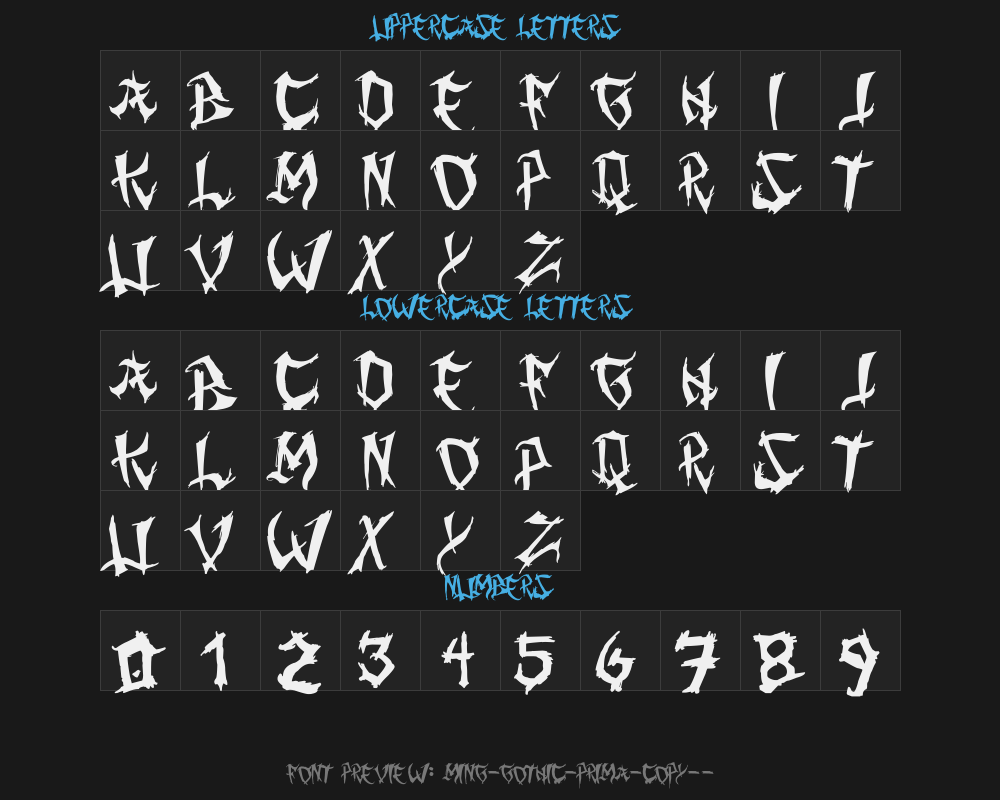 UPPERCASE LETTERS
A B C D E F G H I J
K L M N O P Q R S T
U V W X Y Z
LOWERCASE LETTERS
A B C D E F G H I J
K L M N O P Q R S T
U V W X Y Z
NUMBERS
0 1 2 3 4 5 6 7 8 9
FONT PREVIEW: MING-GOTHIC-PRIMA-COPY--